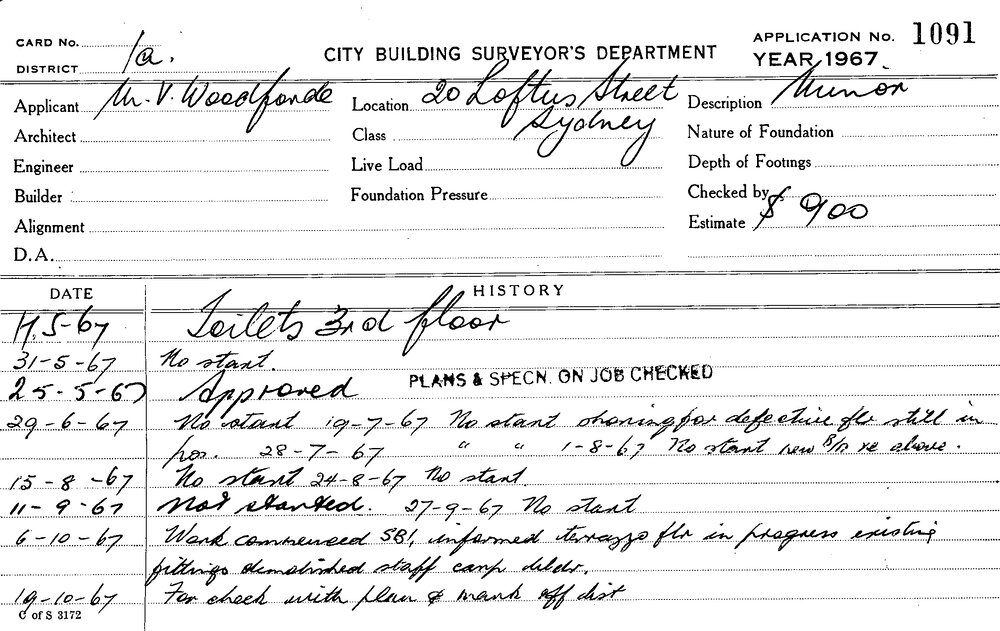 CARD No. 1a.
DISTRICT
CITY BUILDING SURVEYOR'S DEPARTMENT
APPLICATION No. 1091
YEAR 1967.
Applicant M. V. Woodforde
Location 20 Loftus Street
Sydney
Description Minor
Architect
Class
Nature of Foundation
Engineer
Live Load
Depth of Footings
Builder
Foundation Pressure
Checked by
Alignment
Estimate $ 900
D.A.
DATE HISTORY
17.5-67 Toilets 3rd floor
31-5-67 No start.
25-5-67 Approved PLANS & SPECN. ON JOB CHECKED
29-6-67 No start 19-7-67 No start shoring for defective flr still in
pos. 28-7-67 " " 1-8-67 No start new B/n re above.
15-8-67 No start 24-8-67 No start.
11-9-67 Not started. 27-9-67 No start
6-10-67 Work commenced SBI, informed terrazzo flr in progress existing
fittings demolished staff carp
19-10-67 For check with plan & mark off list
C of S 3172